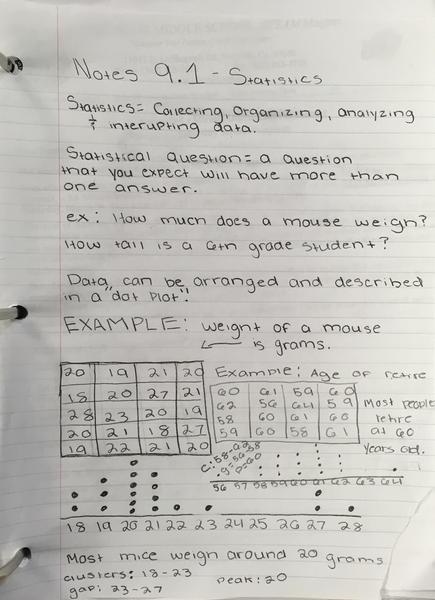 Notes 9.1 - Statistics
Statistics = Collecting, Organizing, analyzing
& interupting data.
Statistical question = a question
that you expect will have more than
one answer.
ex: How much does a mouse weigh?
How tall is a 6th grade student?
Data can be arranged and described
in a "dot plot".
EXAMPLE: weight of a mouse
is grams.
20 19 21 20
18 20 27 21
28 23 20 19
20 21 18 27
19 22 21 20
Example: Age of retire
60 61 59 60
62 56 64 59
58 60 61 60
59 60 58 61
Most people
retire
at 60
years old.
56 57 58 59 60 61 62 63 64
18 19 20 21 22 23 24 25 26 27 28
Most mice weigh around 20 grams
clusters: 18-23
peak: 20
gap: 23-27